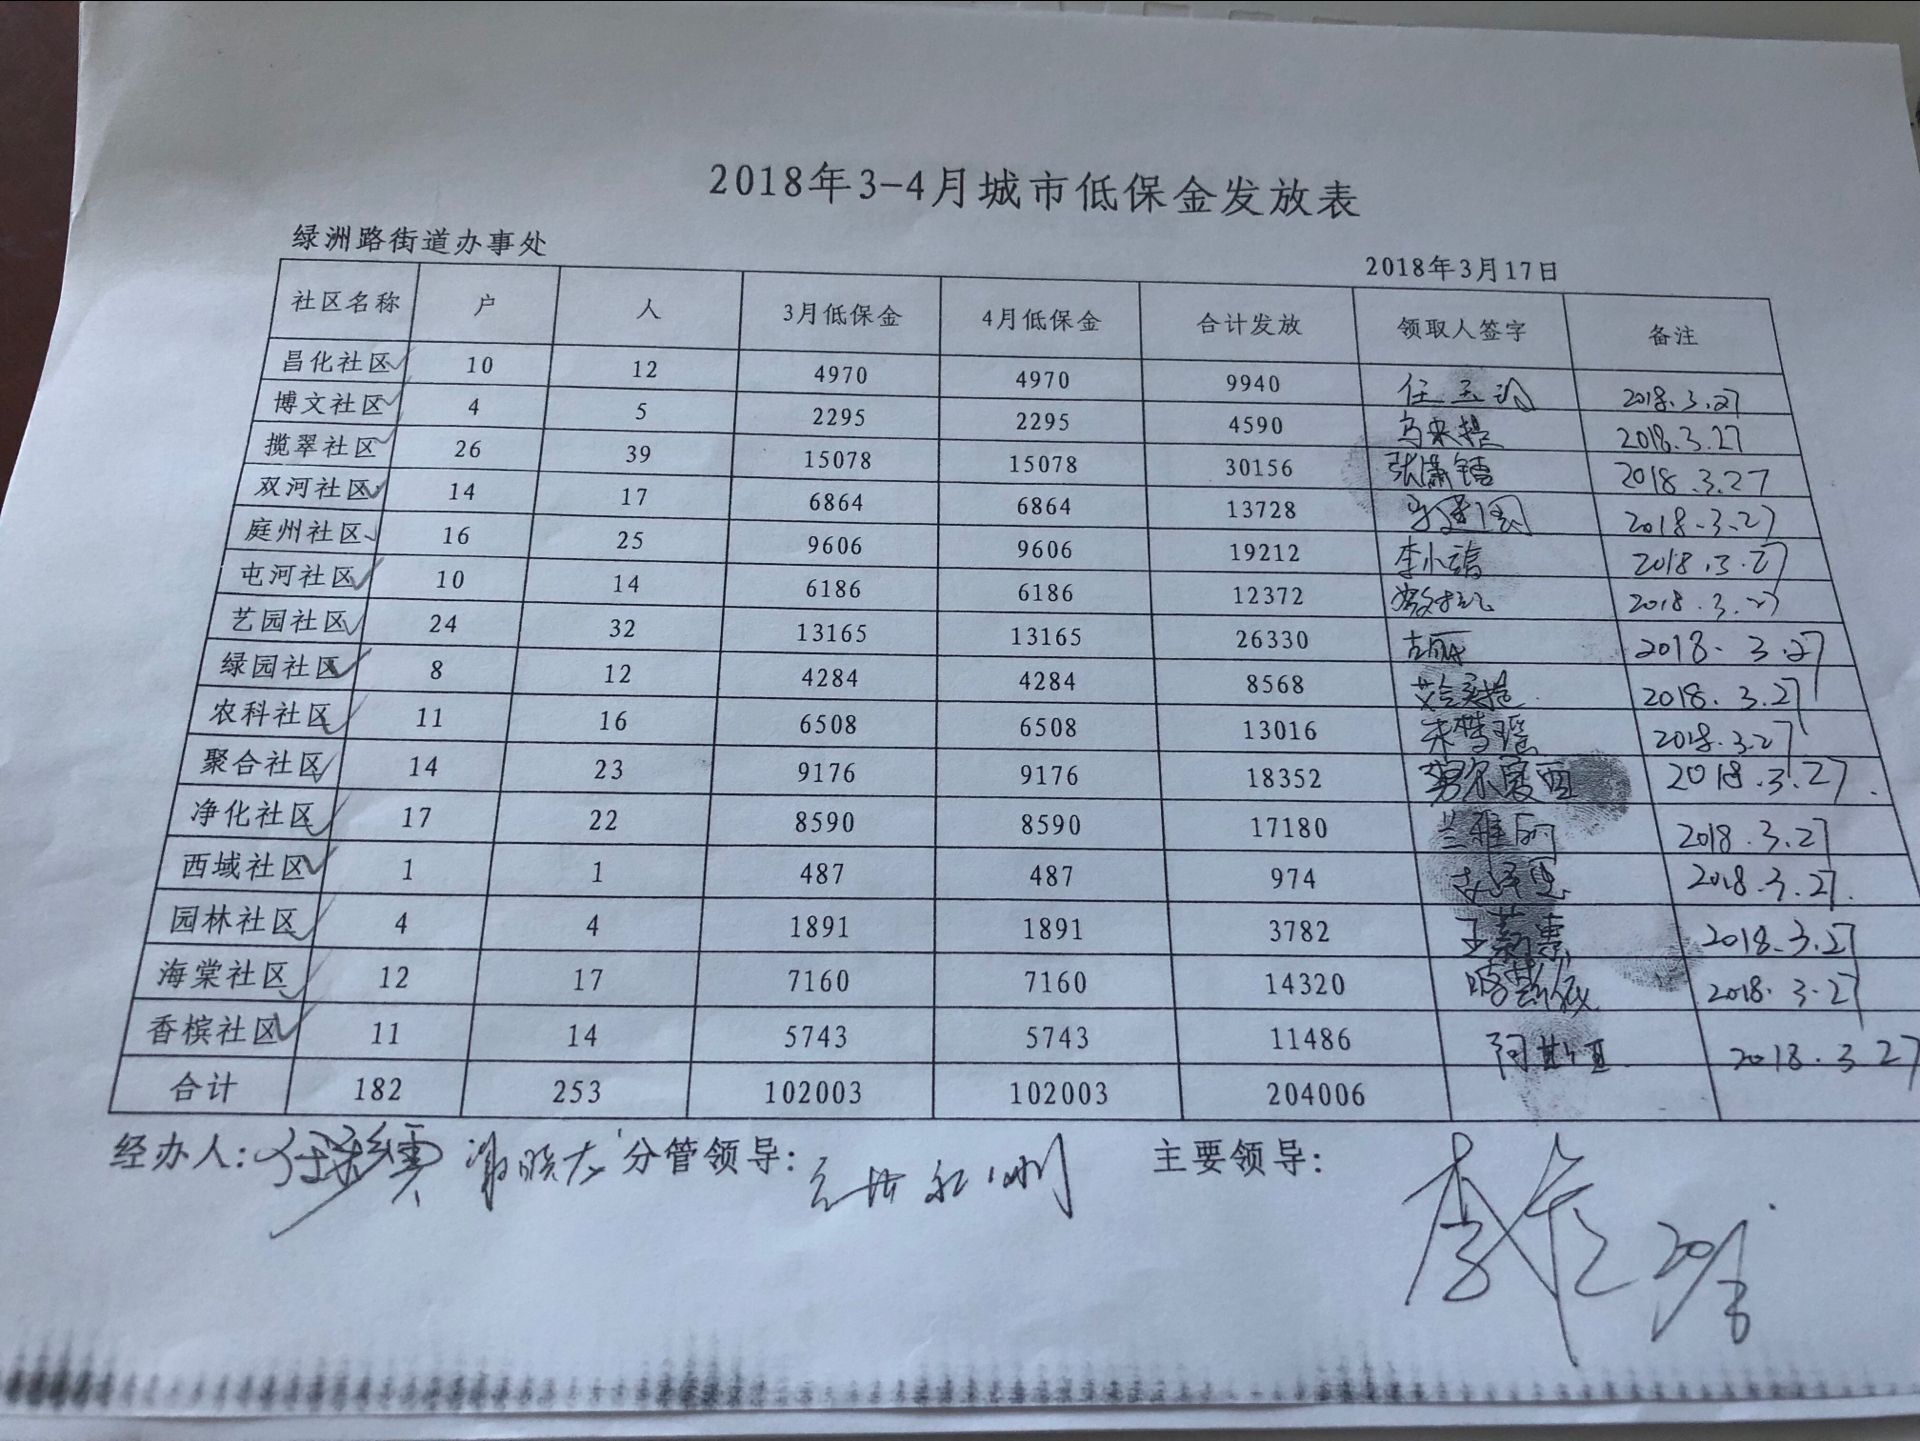 2018年3-4月城市低保金发放表
绿洲路街道办事处
2018年3月17日
社区名称 户 人 3月低保金 4月低保金 合计发放 领取人签字 备注
昌化社区 10 12 4970 4970 9940 2018.3.27
博文社区 4 5 2295 2295 4590 2018.3.27
揽翠社区 26 39 15078 15078 30156 2018.3.27
双河社区 14 17 6864 6864 13728 2018.3.27
庭州社区 16 25 9606 9606 19212 2018.3.27
屯河社区 10 14 6186 6186 12372 2018.3.27
艺园社区 24 32 13165 13165 26330 2018.3.27
绿园社区 8 12 4284 4284 8568 2018.3.27
农科社区 11 16 6508 6508 13016 2018.3.27
聚合社区 14 23 9176 9176 18352 2018.3.27
净化社区 17 22 8590 8590 17180 2018.3.27
西域社区 1 1 487 487 974 2018.3.27.
园林社区 4 4 1891 1891 3782 2018.3.27
海棠社区 12 17 7160 7160 14320 2018.3.27
香槟社区 11 14 5743 5743 11486 2018.3.27
合计 182 253 102003 102003 204006
经办人: 分管领导: 主要领导: